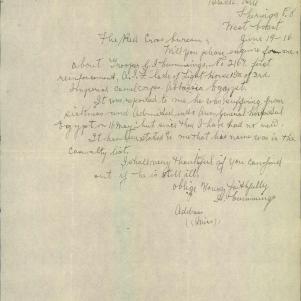 Springs Rd
West Hobart
June 19-16
The Red Cross bureau,
Will you please inquire for me
about Trooper G. J. Cummings, No 2167 first
reinforcement, A.I.F. late of Light horse of 3rd
Imperial camel corps Abbassia Egypt.
It was reported to me he was suffering from
sickness and Admitted into general hospital
Egypt on 16 May: but since then I have had no word.
It has been stated to me that his name was in the
casualty list.
I shall very thankful if you can find
out if he is still ill.
oblige Yours faithfully
Cummings
Address
(Miss)